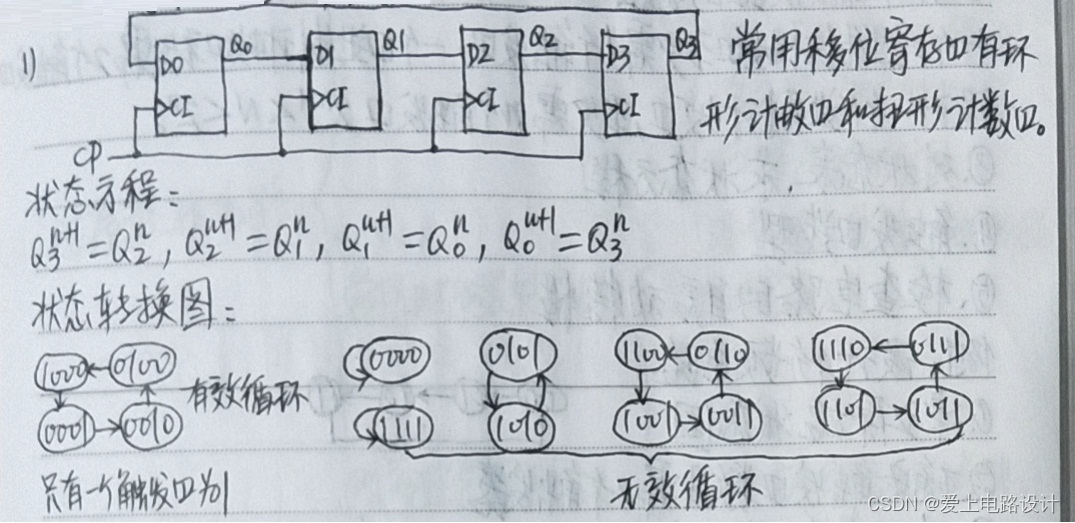 1) D0 Q0 D1 Q1 D2 Q2 D3 Q3 常用移位寄存口有环
CI CI CI CI 形计数口和扭形计数口。
CP
状态方程:
Q₃ⁿ⁺¹=Q₂ⁿ, Q₂ⁿ⁺¹=Q₁ⁿ, Q₁ⁿ⁺¹=Q₀ⁿ, Q₀ⁿ⁺¹=Q₃ⁿ
状态转换图:
1000 0100 0000 0101 1100 0110 1110 0111
有效循环
0001 0010 1111 1010 1001 0011 1101 1011
只有一个触发口为1 无效循环
CSDN @爱上电路设计